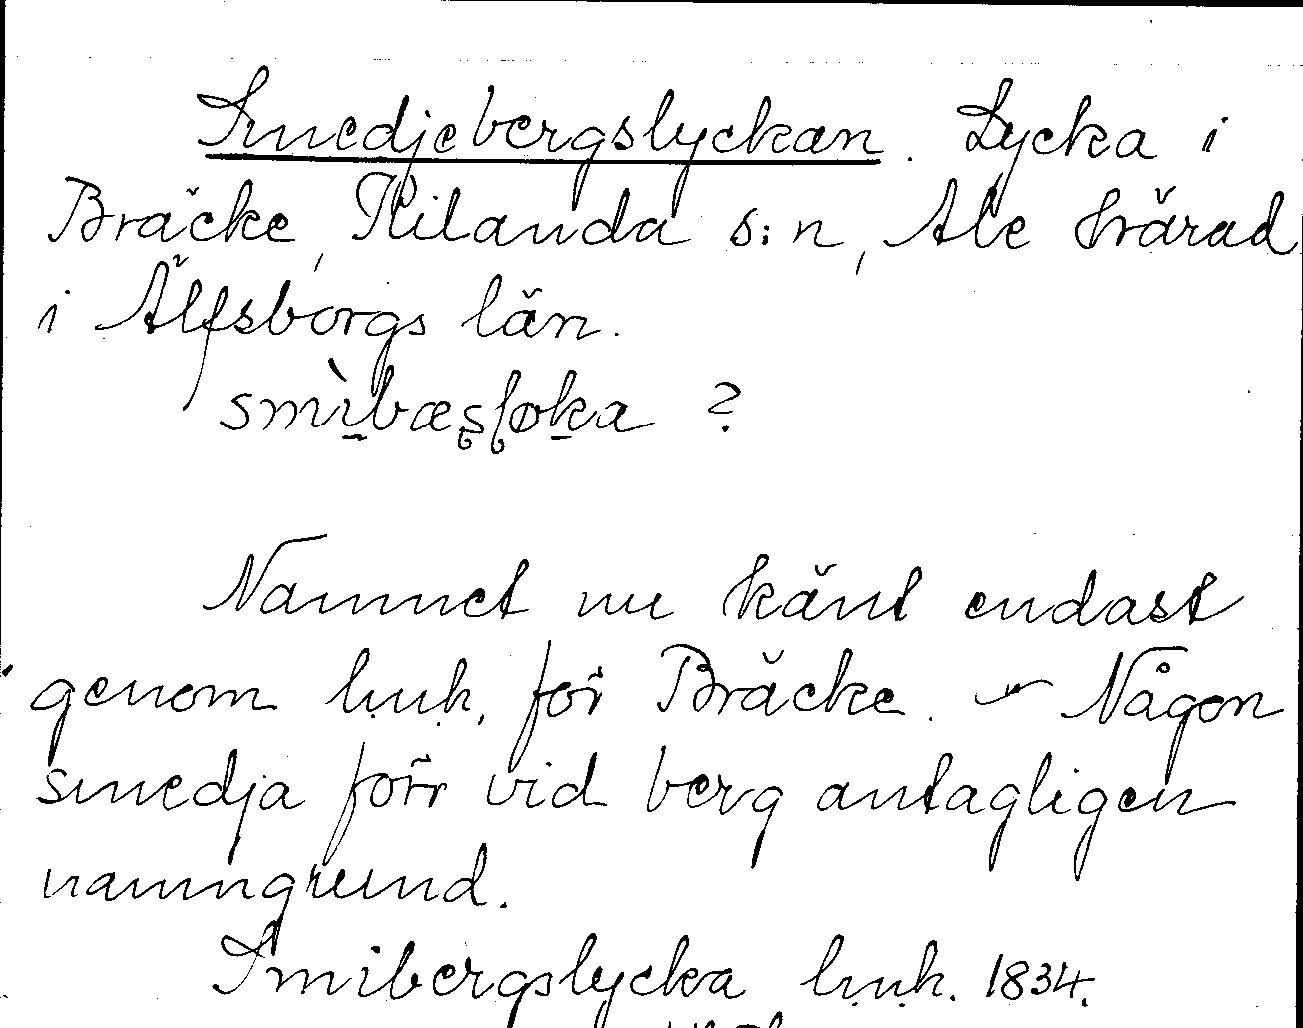 Smedjebergslyckan. Lycka i
Bräcke, Kilanda s:n, Ale härad
i Älfsborgs län.
smìbæʂɭøka ?
Namnet nu känt endast
genom h.n.h. för Bräcke. – Någon
smedja förr vid berg antagligen
namngrund.
Smibergslycka h.n.h. 1834.